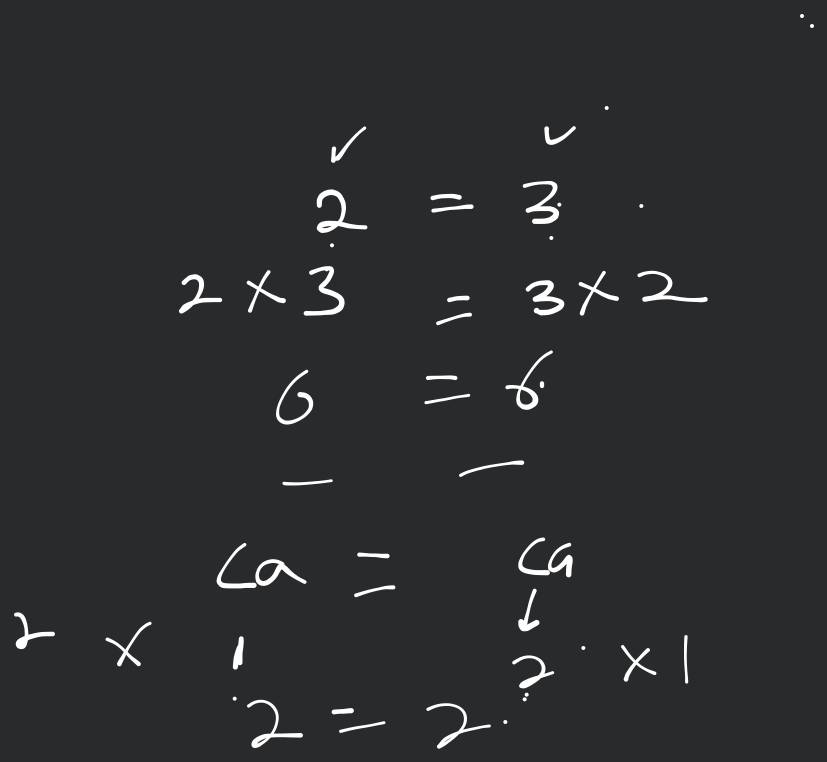 ✓ ✓
2 = 3
2 × 3 = 3 × 2
6 = 6
— —
Ca = Ca
↓
2 × 1 2 × 1
2 = 2